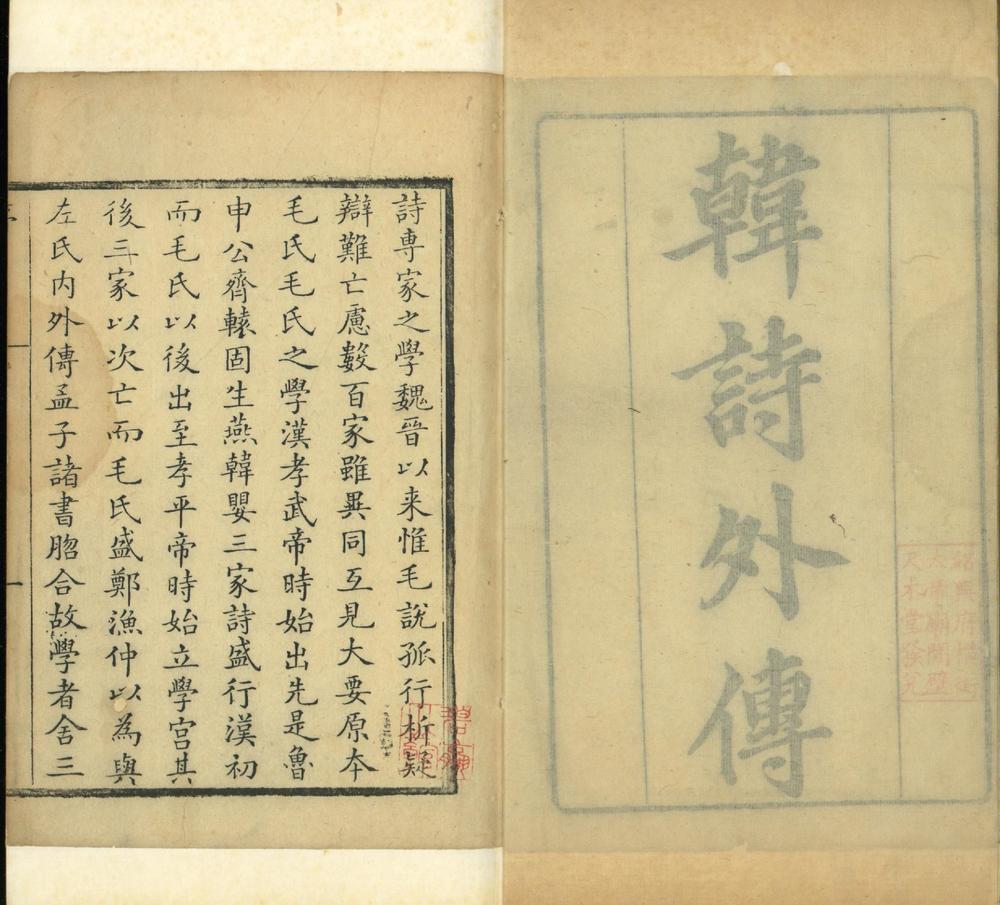 韓詩外傳
詩專家之學魏晉以来惟毛說孤行析疑
辯難亡慮數百家雖異同互見大要原本
毛氏毛氏之學漢孝武帝時始出先是魯
申公齊轅固生燕韓嬰三家詩盛行漢初
而毛氏以後出至孝平帝時始立學宫其
後三家以次亡而毛氏盛鄭漁仲以為與
左氏内外傳孟子諸書脗合故學者舍三
一